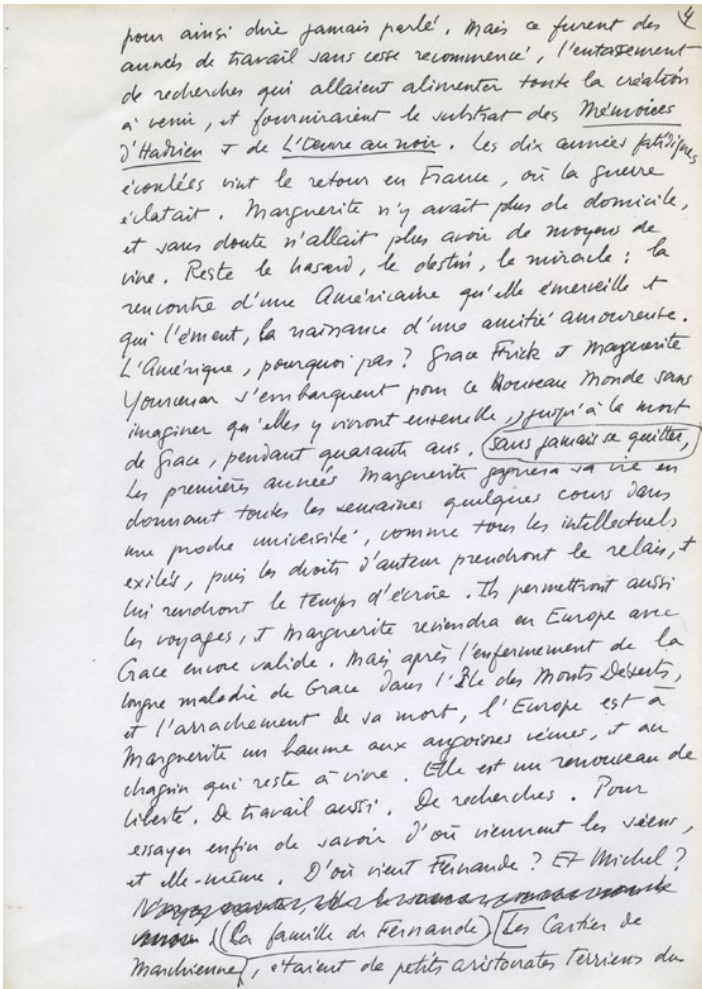 4
pour ainsi dire jamais parlé. Mais ce furent des
années de travail sans cesse recommencé, l'entassement
de recherches qui allaient alimenter toute la création
à venir, et fourniraient le substrat des Mémoires
d'Hadrien et de L'Oeuvre au noir. Les dix années fatidiques
écoulées vint le retour en France, où la guerre
éclatait. Marguerite n'y avait plus de domicile,
et sans doute n'allait plus avoir de moyens de
vivre. Reste le hasard, le destin, le miracle : la
rencontre d'une Américaine qu'elle émerveille et
qui l'émeut, la naissance d'une amitié amoureuse.
L'Amérique, pourquoi pas ? Grace Frick et Marguerite
Yourcenar s'embarquent pour ce Nouveau Monde sans
imaginer qu'elles y vivront ensemble, jusqu'à la mort
de Grace, pendant quarante ans. sans jamais se quitter,
Les premières années Marguerite gagnera sa vie en
donnant toutes les semaines quelques cours dans
une proche université, comme tous les intellectuels
exilés, puis les droits d'auteur prendront le relais, et
lui rendront le temps d'écrire. Ils permettront aussi
les voyages, et Marguerite reviendra en Europe avec
Grace encore valide. Mais après l'enfermement de la
longue maladie de Grace dans l'Île des Monts Déserts,
et l'arrachement de sa mort, l'Europe est à
Marguerite un baume aux angoisses vécues, et au
chagrin qui reste à vivre. Elle est un renouveau de
liberté. De travail aussi. De recherches. Pour
essayer enfin de savoir d'où viennent les siens,
et elle-même. D'où vient Fernande ? Et Michel ?
(La famille de Fernande) Les Cartier de
Marchienne, étaient de petits aristocrates terriens du